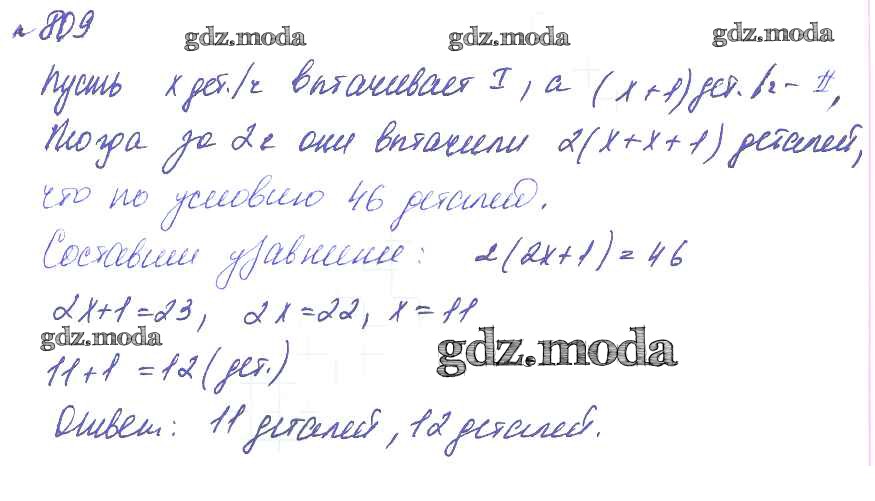 № 809
gdz.moda gdz.moda gdz.moda
Пусть x дет./ч вытачивает I, а (x+1) дет./ч - II,
Тогда за 2ч они выточили 2(x+x+1) деталей,
что по условию 46 деталей.
Составим уравнение: 2(2x+1)=46
2x+1=23, 2x=22, x=11
gdz.moda gdz.moda
11+1=12(дет.)
Ответ: 11 деталей, 12 деталей.